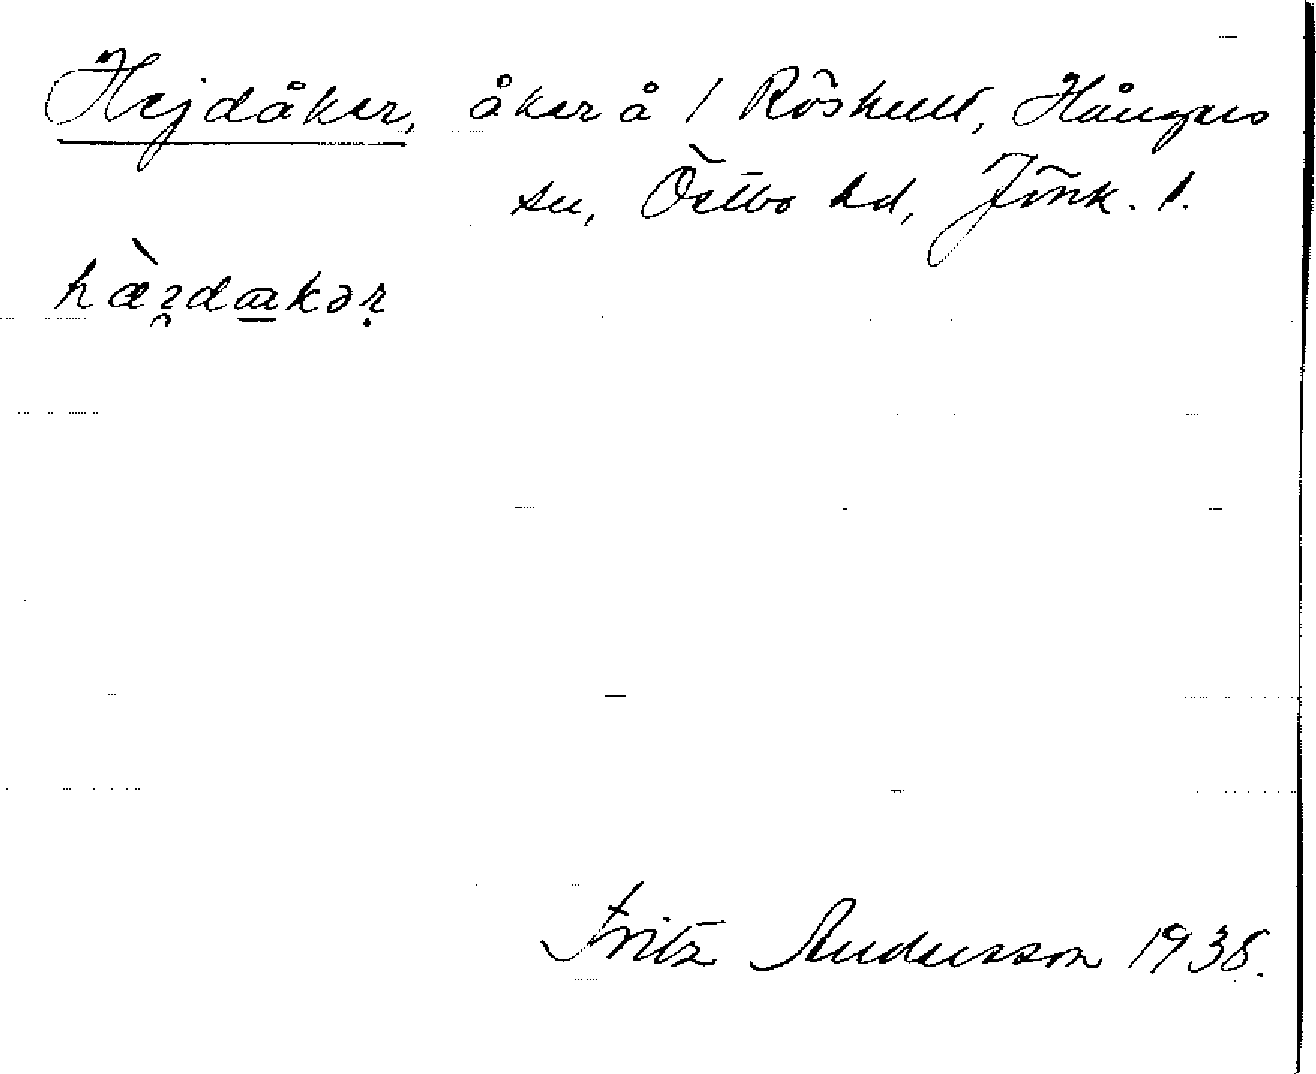 Hejdåker, åker å 1 Röshult, Hånger
sn, Östbo hd, Jönk. l.
Fritz Andersson 1938.